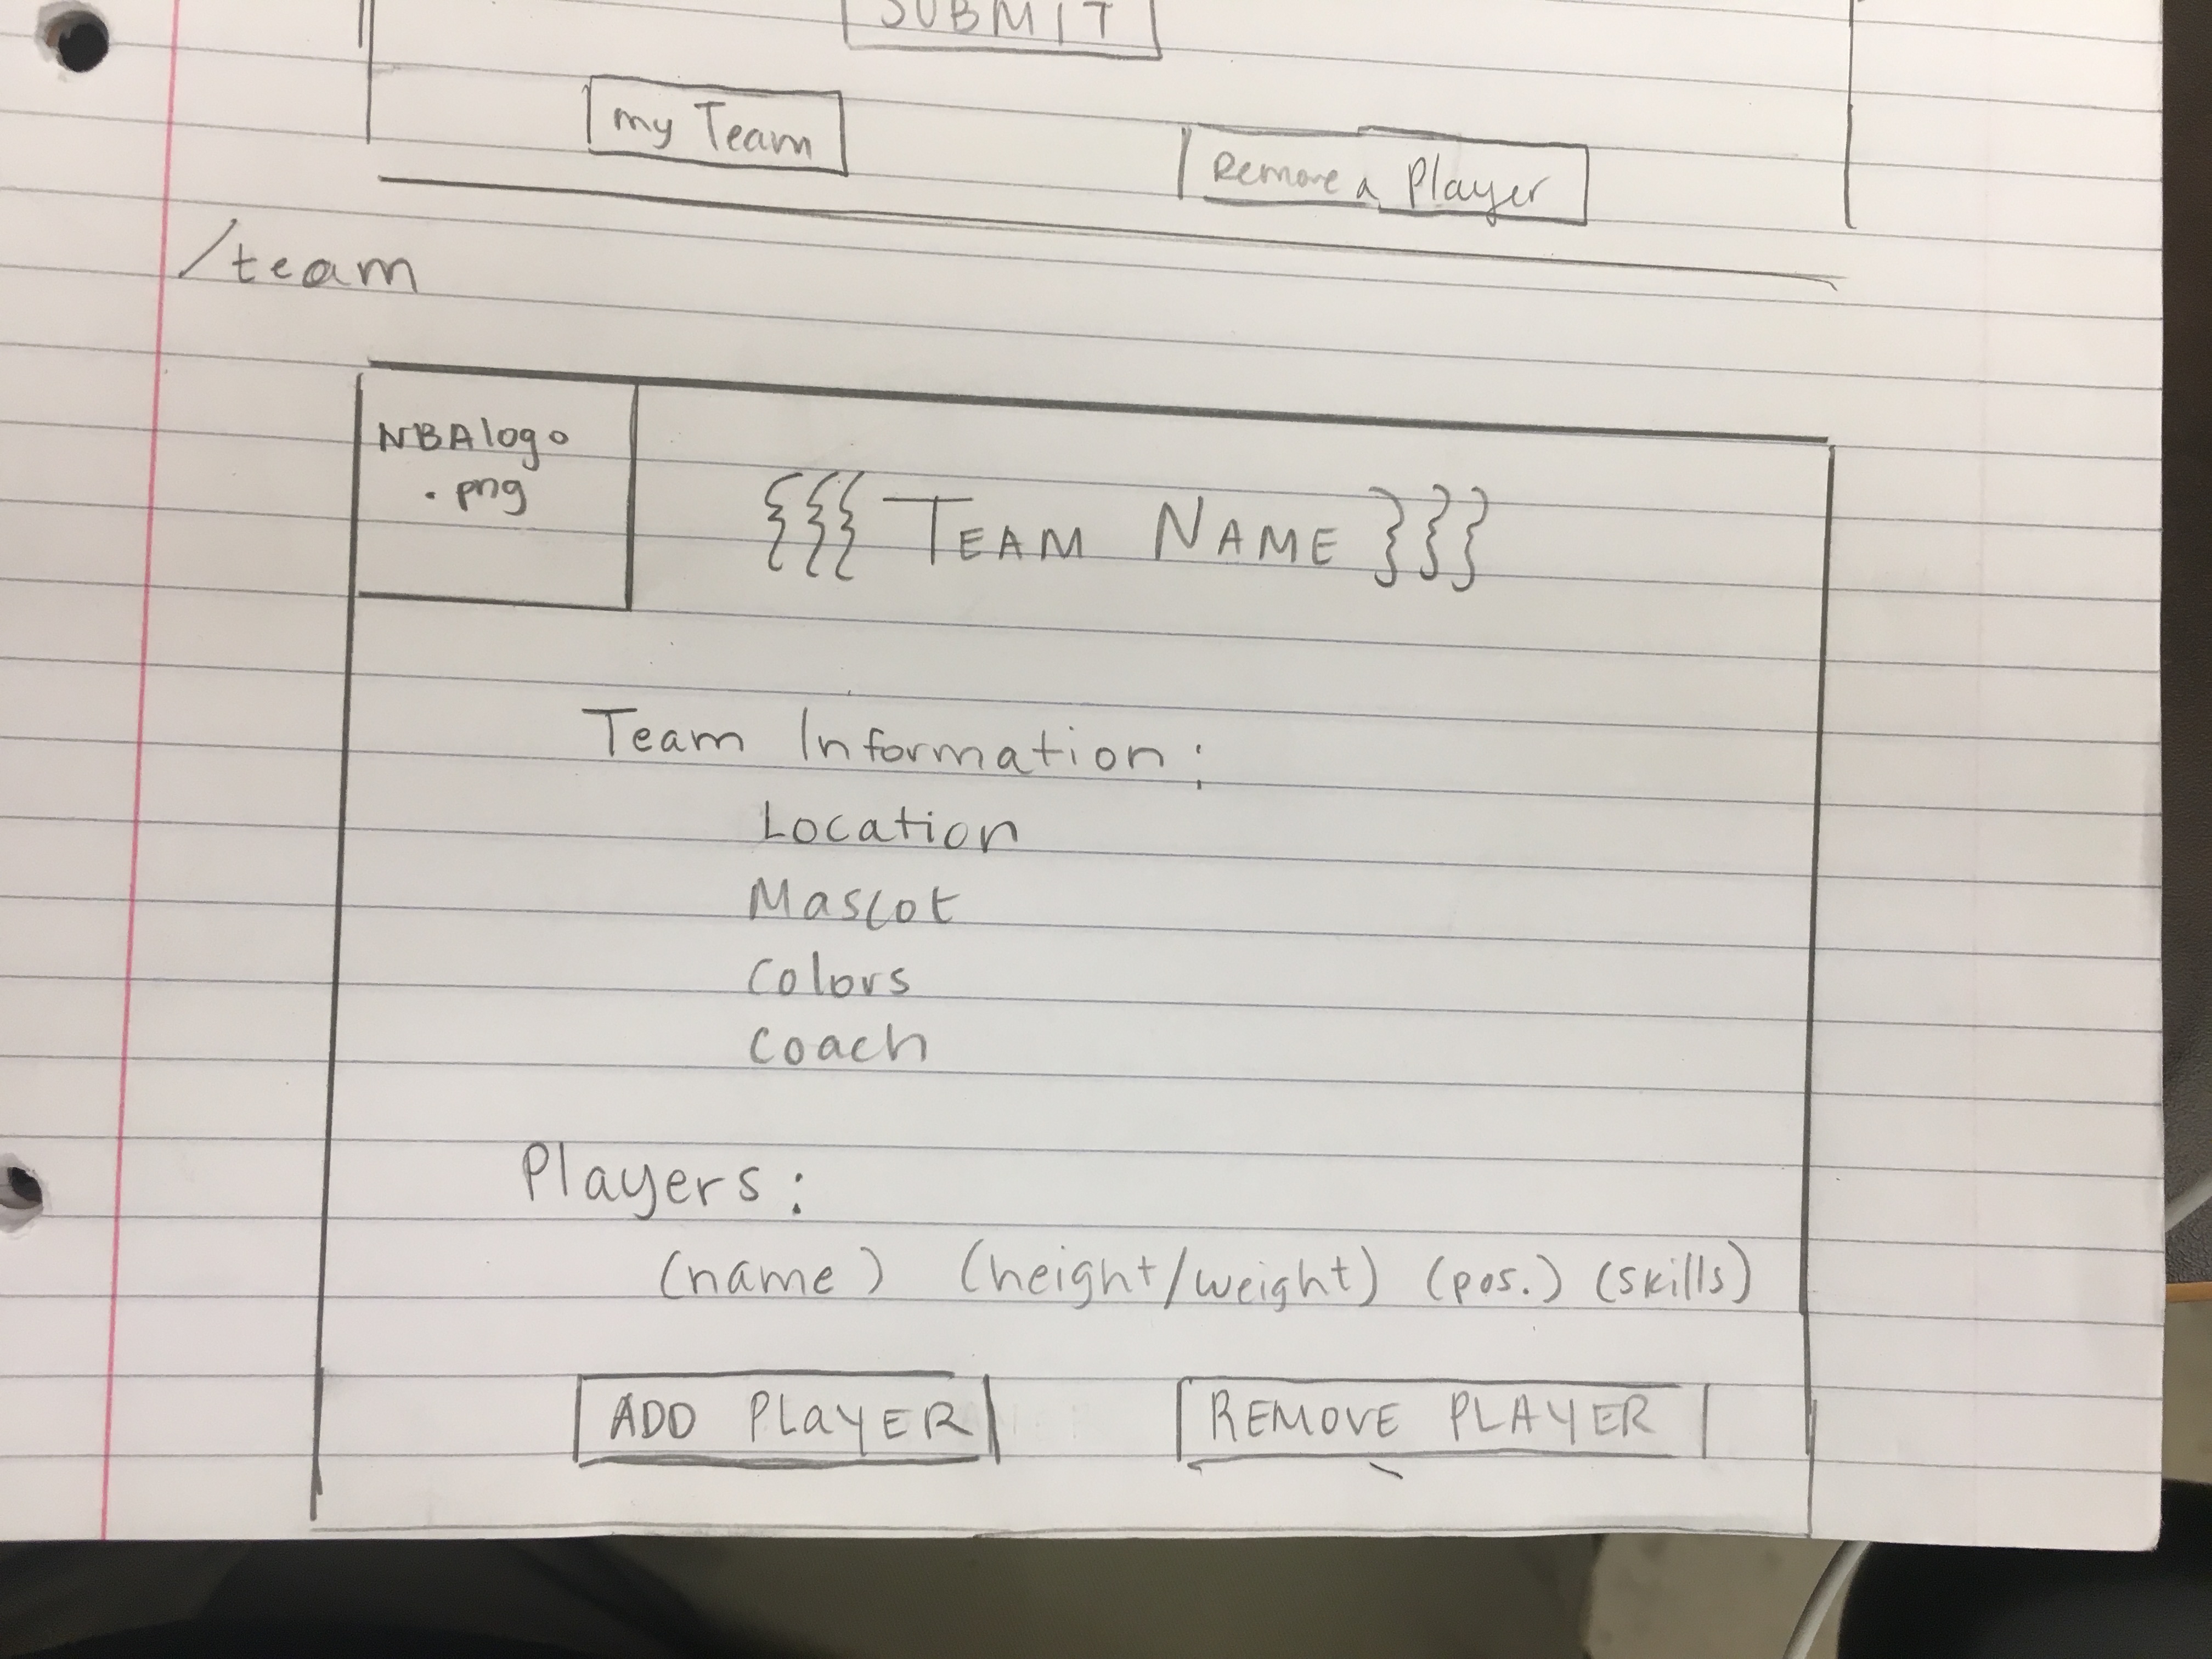 SUBMIT
my Team
Remove a Player
/team
NBAlogo
.png
{{{ TEAM NAME }}}
Team Information:
Location
Mascot
Colors
Coach
Players:
(name) (height/weight) (pos.) (skills)
ADD PLAYER
REMOVE PLAYER